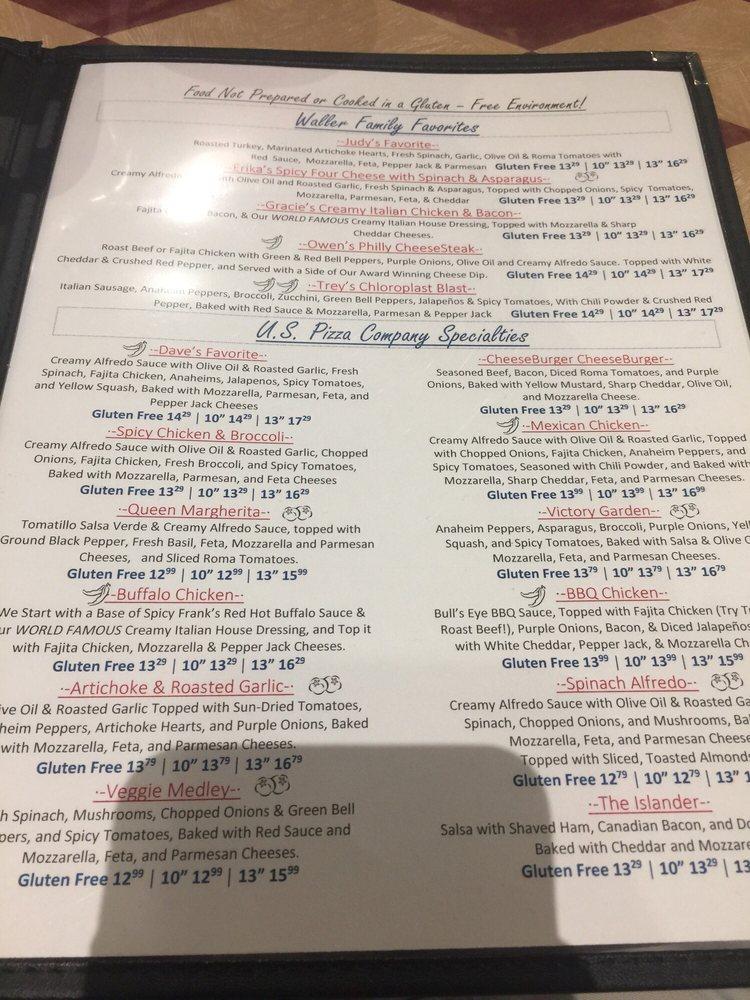 Food Not Prepared or Cooked in a Gluten – Free Environment!
Waller Family Favorites
-·Judy's Favorite-·
Roasted Turkey, Marinated Artichoke Hearts, Fresh Spinach, Garlic, Olive Oil & Roma Tomatoes with
Red Sauce, Mozzarella, Feta, Pepper Jack & Parmesan Gluten Free 13²⁹ | 10” 13²⁹ | 13” 16²⁹
-·Erika's Spicy Four Cheese with Spinach & Asparagus-·
Creamy Alfredo with Olive Oil and Roasted Garlic, Fresh Spinach & Asparagus, Topped with Chopped Onions, Spicy Tomatoes,
Mozzarella, Parmesan, Feta, & Cheddar Gluten Free 13²⁹ | 10” 13²⁹ | 13” 16²⁹
·-Gracie's Creamy Italian Chicken & Bacon-·
Fajita Bacon, & Our WORLD FAMOUS Creamy Italian House Dressing, Topped with Mozzarella & Sharp
Cheddar Cheeses. Gluten Free 13²⁹ | 10” 13²⁹ | 13” 16²⁹
·-Owen's Philly CheeseSteak-·
Roast Beef or Fajita Chicken with Green & Red Bell Peppers, Purple Onions, Olive Oil and Creamy Alfredo Sauce. Topped with White
Cheddar & Crushed Red Pepper, and Served with a Side of Our Award Winning Cheese Dip. Gluten Free 14²⁹ | 10” 14²⁹ | 13” 17²⁹
·-Trey's Chloroplast Blast-·
Italian Sausage, Anaheim Peppers, Broccoli, Zucchini, Green Bell Peppers, Jalapeños & Spicy Tomatoes, With Chili Powder & Crushed Red
Pepper, Baked with Red Sauce & Mozzarella, Parmesan & Pepper Jack Gluten Free 14²⁹ | 10” 14²⁹ | 13” 17²⁹
U.S. Pizza Company Specialties
·-Dave's Favorite-·
Creamy Alfredo Sauce with Olive Oil & Roasted Garlic, Fresh
Spinach, Fajita Chicken, Anaheims, Jalapenos, Spicy Tomatoes,
and Yellow Squash, Baked with Mozzarella, Parmesan, Feta, and
Pepper Jack Cheeses
Gluten Free 14²⁹ | 10” 14²⁹ | 13” 17²⁹
·-Spicy Chicken & Broccoli-·
Creamy Alfredo Sauce with Olive Oil & Roasted Garlic, Chopped
Onions, Fajita Chicken, Fresh Broccoli, and Spicy Tomatoes,
Baked with Mozzarella, Parmesan, and Feta Cheeses
Gluten Free 13²⁹ | 10” 13²⁹ | 13” 16²⁹
·-Queen Margherita-·
Tomatillo Salsa Verde & Creamy Alfredo Sauce, topped with
Ground Black Pepper, Fresh Basil, Feta, Mozzarella and Parmesan
Cheeses, and Sliced Roma Tomatoes.
Gluten Free 12⁹⁹ | 10” 12⁹⁹ | 13” 15⁹⁹
·-Buffalo Chicken-·
We Start with a Base of Spicy Frank's Red Hot Buffalo Sauce &
ur WORLD FAMOUS Creamy Italian House Dressing, and Top it
with Fajita Chicken, Mozzarella & Pepper Jack Cheeses.
Gluten Free 13²⁹ | 10” 13²⁹ | 13” 16²⁹
·-Artichoke & Roasted Garlic-·
ive Oil & Roasted Garlic Topped with Sun-Dried Tomatoes,
heim Peppers, Artichoke Hearts, and Purple Onions, Baked
with Mozzarella, Feta, and Parmesan Cheeses.
Gluten Free 13⁷⁹ | 10” 13⁷⁹ | 13” 16⁷⁹
·-Veggie Medley-·
h Spinach, Mushrooms, Chopped Onions & Green Bell
pers, and Spicy Tomatoes, Baked with Red Sauce and
Mozzarella, Feta, and Parmesan Cheeses.
Gluten Free 12⁹⁹ | 10” 12⁹⁹ | 13” 15⁹⁹
·-CheeseBurger CheeseBurger-·
Seasoned Beef, Bacon, Diced Roma Tomatoes, and Purple
Onions, Baked with Yellow Mustard, Sharp Cheddar, Olive Oil,
and Mozzarella Cheese.
Gluten Free 13²⁹ | 10” 13²⁹ | 13” 16²⁹
·-Mexican Chicken-·
Creamy Alfredo Sauce with Olive Oil & Roasted Garlic, Topped
with Chopped Onions, Fajita Chicken, Anaheim Peppers, and
Spicy Tomatoes, Seasoned with Chili Powder, and Baked with
Mozzarella, Sharp Cheddar, Feta, and Parmesan Cheeses.
Gluten Free 13⁹⁹ | 10” 13⁹⁹ | 13” 16⁹⁹
·-Victory Garden-·
Anaheim Peppers, Asparagus, Broccoli, Purple Onions, Yel
Squash, and Spicy Tomatoes, Baked with Salsa & Olive O
Mozzarella, Feta, and Parmesan Cheeses.
Gluten Free 13⁷⁹ | 10” 13⁷⁹ | 13” 16⁷⁹
·-BBQ Chicken-·
Bull's Eye BBQ Sauce, Topped with Fajita Chicken (Try T
Roast Beef!), Purple Onions, Bacon, & Diced Jalapeños
with White Cheddar, Pepper Jack, & Mozzarella Ch
Gluten Free 13⁹⁹ | 10” 13⁹⁹ | 13” 15⁹⁹
·-Spinach Alfredo-·
Creamy Alfredo Sauce with Olive Oil & Roasted Ga
Spinach, Chopped Onions, and Mushrooms, Ba
Mozzarella, Feta, and Parmesan Cheese
Topped with Sliced, Toasted Almonds
Gluten Free 12⁷⁹ | 10” 12⁷⁹ | 13” 1
·-The Islander-·
Salsa with Shaved Ham, Canadian Bacon, and Do
Baked with Cheddar and Mozzare
Gluten Free 13²⁹ | 10” 13²⁹ | 13